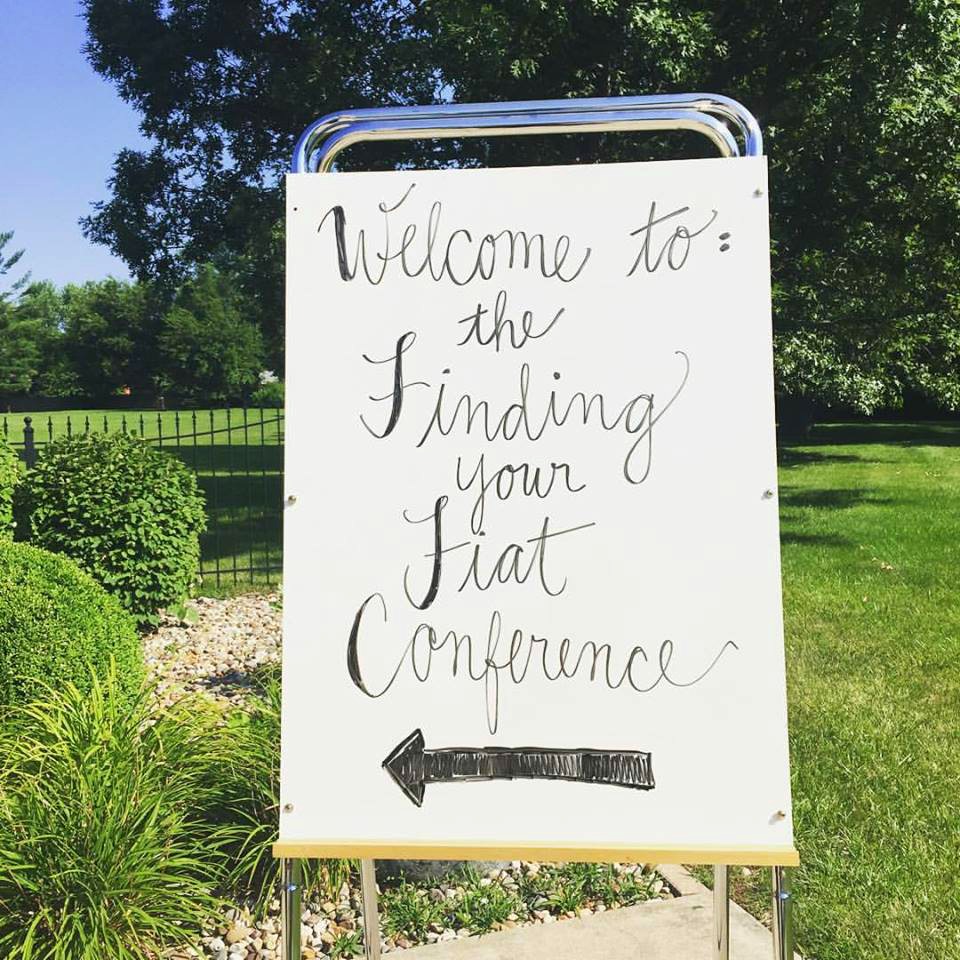 Welcome to:
the
Finding
your
Fiat
Conference